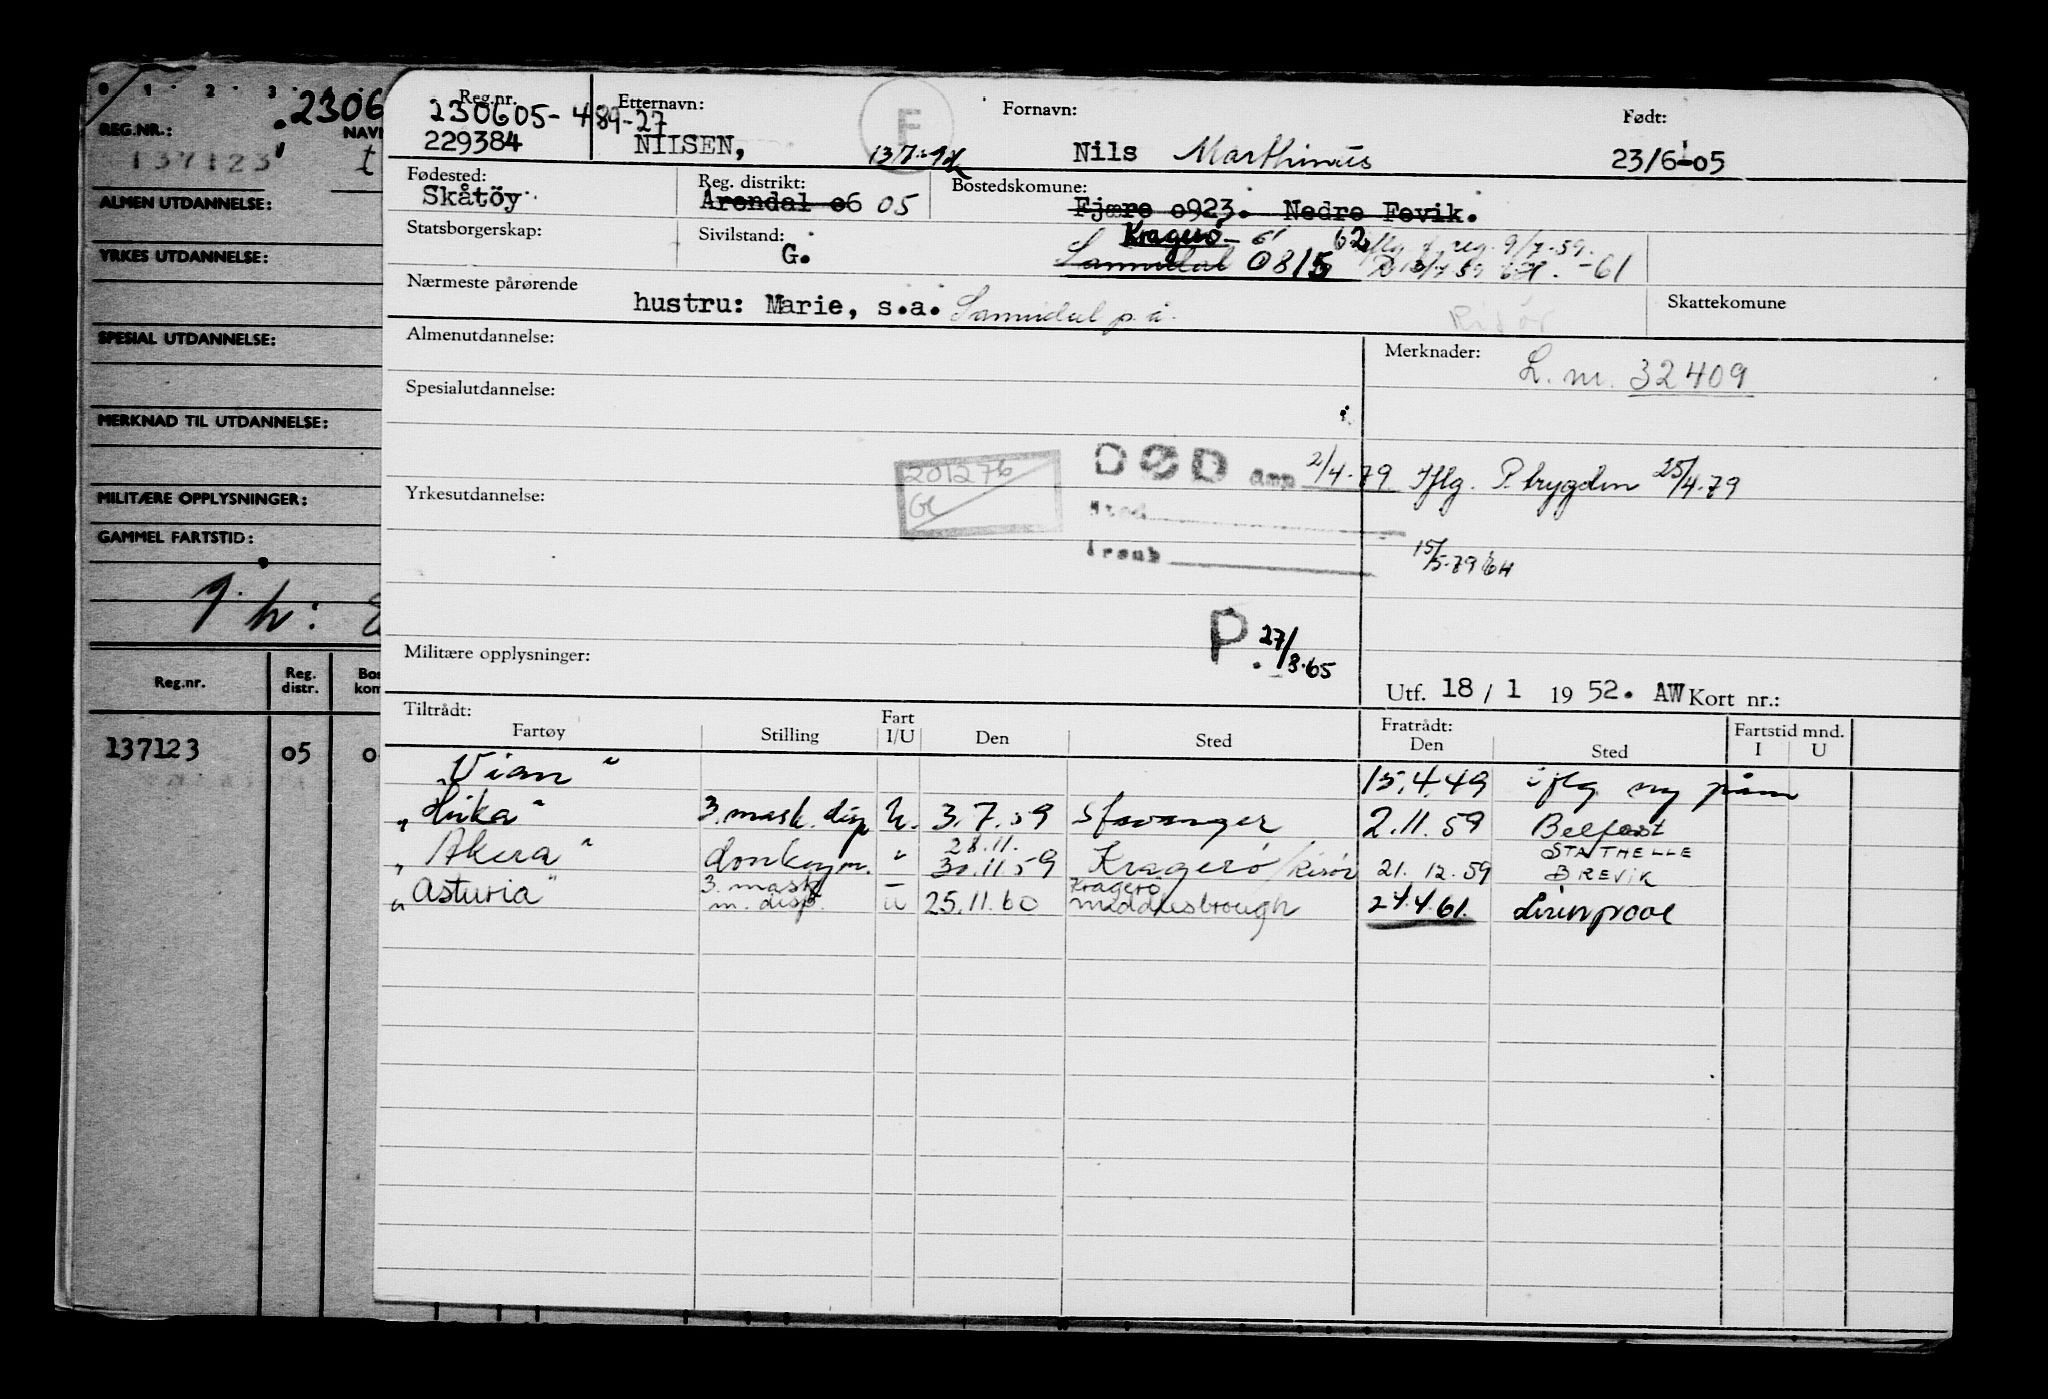 0 1 2 3
.2306
REG.NR.:
NAVN
137123
t
ALMEN UTDANNELSE:
YRKES UTDANNELSE:
SPESIAL UTDANNELSE:
MERKNAD TIL UTDANNELSE:
MILITÆRE OPPLYSNINGER:
GAMMEL FARTSTID:
Reg.nr.
Reg. distr.
Bos kom
137123 05 0
Reg.nr.
230605-489-27
229384
Etternavn:
NIISEN,
F
Fornavn:
Nils Marthinius
Født:
23/6-05
Fødested:
Skåtöy
Reg. distrikt:
Arendal o6 05
Bostedskomune:
Fjære o923. Nedre Fevik.
Statsborgerskap:
Sivilstand:
G.
Kragerö - 61 62
Sannidal 0815
9/7-59.
-61
Nærmeste pårørende
hustru: Marie, s.a. Sannidal p.å.
Risör
Skattekomune
Almenutdannelse:
Merknader:
L. nr. 32409
Spesialutdannelse:
201276
GC
DØD anm 2/4-79 Iflg. P. trygden 25/4-79
Sted
Årsak
15/5-79 GH
Yrkesutdannelse:
P. 27/3-65
Militære opplysninger:
Utf. 18 / 1 19 52. AW Kort nr.:
Tiltrådt:
Fartøy
Stilling
Fart I/U
Den
Sted
Fratrådt:
Den
Sted
Fartstid mnd.
I U
"Vian" 15.4.49 iflg ny
3. mask. disp U. 3.7.59 Stavanger 2.11.59 Belfast
28.11.
"Akera" donkeym. " 30.11.59 Kragerö/Risör 21.12.59 STATHELLE BREVIK
"Asturia" 3. mask m. disp. U 25.11.60 Kragerö Middlesbrough 24.4.61. Liverpool